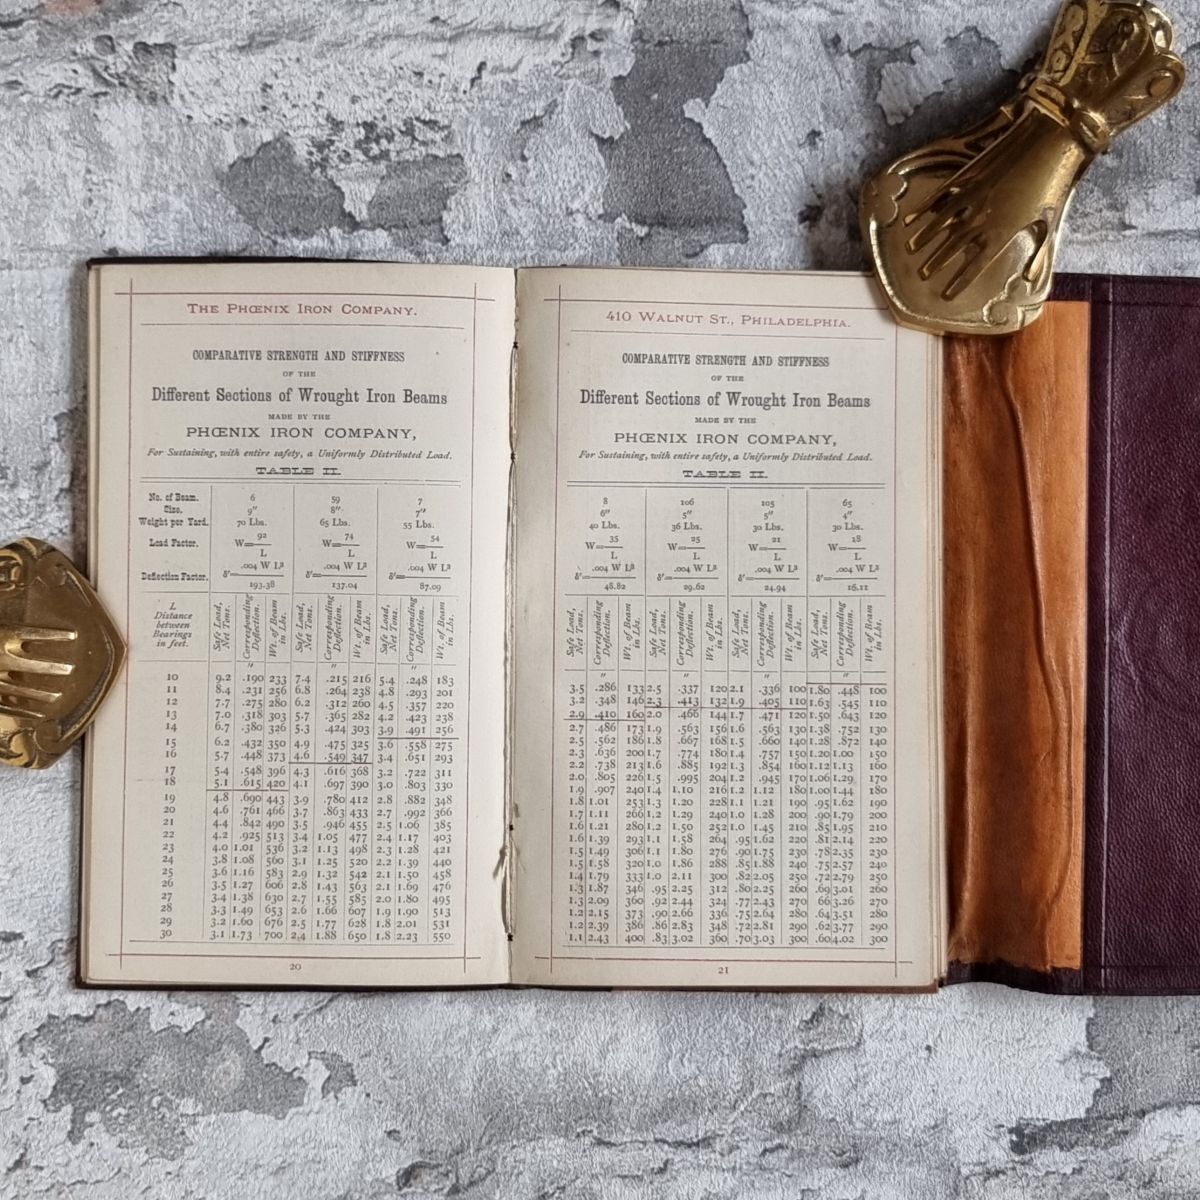 THE PHŒNIX IRON COMPANY.
COMPARATIVE STRENGTH AND STIFFNESS
OF THE
Different Sections of Wrought Iron Beams
MADE BY THE
PHŒNIX IRON COMPANY,
For Sustaining, with entire safety, a Uniformly Distributed Load.
TABLE II.
No. of Beam. 6 59 7
Size. 9" 8" 7"
Weight per Yard. 70 Lbs. 65 Lbs. 55 Lbs.
Load Factor. W=92/L W=74/L W=54/L
Deflection Factor. δ'=.004 W L³/193.38 δ'=.004 W L³/137.04 δ'=.004 W L³/87.09
L Distance between Bearings in feet. Safe Load, Net Tons. Corresponding Deflection. Wt. of Beam in Lbs. Safe Load, Net Tons. Corresponding Deflection. Wt. of Beam in Lbs. Safe Load, Net Tons. Corresponding Deflection. Wt. of Beam in Lbs.
" " "
10 9.2 .190 233 7.4 .215 216 5.4 .248 183
11 8.4 .231 256 6.8 .264 238 4.8 .293 201
12 7.7 .275 280 6.2 .312 260 4.5 .357 220
13 7.0 .318 303 5.7 .365 282 4.2 .423 238
14 6.7 .380 326 5.3 .424 303 3.9 .491 256
15 6.2 .432 350 4.9 .475 325 3.6 .558 275
16 5.7 .448 373 4.6 .549 347 3.4 .651 293
17 5.4 .548 396 4.3 .616 368 3.2 .722 311
18 5.1 .615 420 4.1 .697 390 3.0 .803 330
19 4.8 .690 443 3.9 .780 412 2.8 .882 348
20 4.6 .761 466 3.7 .863 433 2.7 .992 366
21 4.4 .842 490 3.5 .946 455 2.5 1.06 385
22 4.2 .925 513 3.4 1.05 477 2.4 1.17 403
23 4.0 1.01 536 3.2 1.13 498 2.3 1.28 421
24 3.8 1.08 560 3.1 1.25 520 2.2 1.39 440
25 3.6 1.16 583 2.9 1.32 542 2.1 1.50 458
26 3.5 1.27 606 2.8 1.43 563 2.1 1.69 476
27 3.4 1.38 630 2.7 1.55 585 2.0 1.80 495
28 3.3 1.49 653 2.6 1.66 607 1.9 1.90 513
29 3.2 1.60 676 2.5 1.77 628 1.8 2.01 531
30 3.1 1.73 700 2.4 1.88 650 1.8 2.23 550
20
410 WALNUT ST., PHILADELPHIA.
COMPARATIVE STRENGTH AND STIFFNESS
OF THE
Different Sections of Wrought Iron Beams
MADE BY THE
PHŒNIX IRON COMPANY,
For Sustaining, with entire safety, a Uniformly Distributed Load.
TABLE II.
8 106 105 65
6" 5" 5" 4"
40 Lbs. 36 Lbs. 30 Lbs. 30 Lbs.
W=35/L W=25/L W=21/L W=18/L
δ'=.004 W L³/48.82 δ'=.004 W L³/29.62 δ'=.004 W L³/24.94 δ'=.004 W L³/16.11
Safe Load, Net Tons. Corresponding Deflection. Wt. of Beam in Lbs. Safe Load, Net Tons. Corresponding Deflection. Wt. of Beam in Lbs. Safe Load, Net Tons. Corresponding Deflection. Wt. of Beam in Lbs. Safe Load, Net Tons. Corresponding Deflection. Wt. of Beam in Lbs.
" " " "
3.5 .286 133 2.5 .337 120 2.1 .336 100 1.80 .448 100
3.2 .348 146 2.3 .413 132 1.9 .405 110 1.63 .545 110
2.9 .410 160 2.0 .466 144 1.7 .471 120 1.50 .643 120
2.7 .486 173 1.9 .563 156 1.6 .563 130 1.38 .752 130
2.5 .562 186 1.8 .667 168 1.5 .660 140 1.28 .872 140
2.3 .636 200 1.7 .774 180 1.4 .757 150 1.20 1.00 150
2.2 .738 213 1.6 .885 192 1.3 .854 160 1.12 1.13 160
2.0 .805 226 1.5 .995 204 1.2 .945 170 1.06 1.29 170
1.9 .907 240 1.4 1.10 216 1.2 1.12 180 1.00 1.44 180
1.8 1.01 253 1.3 1.20 228 1.1 1.21 190 .95 1.62 190
1.7 1.11 266 1.2 1.29 240 1.0 1.28 200 .90 1.79 200
1.6 1.21 280 1.2 1.50 252 1.0 1.45 210 .85 1.95 210
1.6 1.39 293 1.1 1.58 264 .95 1.62 220 .81 2.14 220
1.5 1.49 306 1.1 1.80 276 .90 1.75 230 .78 2.35 230
1.5 1.58 320 1.0 1.86 288 .85 1.88 240 .75 2.57 240
1.4 1.79 333 1.0 2.11 300 .82 2.05 250 .72 2.79 250
1.3 1.87 346 .95 2.25 312 .80 2.25 260 .69 3.01 260
1.3 2.09 360 .92 2.44 324 .77 2.43 270 .66 3.26 270
1.2 2.15 373 .90 2.66 336 .75 2.64 280 .64 3.51 280
1.2 2.39 386 .86 2.83 348 .72 2.81 290 .62 3.77 290
1.1 2.43 400 .83 3.02 360 .70 3.03 300 .60 4.02 300
21